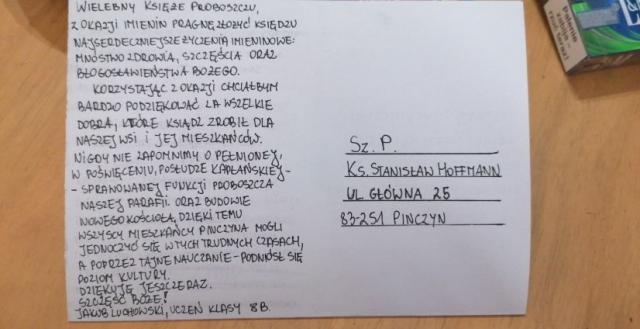 WIELEBNY KSIĘŻE PROBOSZCZU,
Z OKAZJI IMIENIN PRAGNĘ ZŁOŻYĆ KSIĘDZU
NAJSERDECZNIEJSZE ŻYCZENIA IMIENINOWE:
MNÓSTWO ZDROWIA, SZCZĘŚCIA ORAZ
BŁOGOSŁAWIEŃSTWA BOŻEGO.
KORZYSTAJĄC Z OKAZJI CHCIAŁBYM
BARDZO PODZIĘKOWAĆ ZA WSZELKIE
DOBRA, KTÓRE KSIĄDZ ZROBIŁ DLA
NASZEJ WSI I JEJ MIESZKAŃCÓW.
NIGDY NIE ZAPOMNIMY O PEŁNIONEJ,
W POŚWIĘCENIU, POSŁUDZE KAPŁAŃSKIEJ -
- SPRAWOWANEJ FUNKCJI PROBOSZCZA
NASZEJ PARAFII. ORAZ BUDOWIE
NOWEGO KOŚCIOŁA, DZIĘKI TEMU
WSZYSCY MIESZKAŃCY PINCZYNA MOGLI
JEDNOCZYĆ SIĘ W TYCH TRUDNYCH CZASACH,
A POPRZEZ TAJNE NAUCZANIE - PODNIÓSŁ SIĘ
POZIOM KULTURY.
DZIĘKUJĘ JESZCZE RAZ.
SZCZĘŚĆ BOŻE!
JAKUB LUCHOWSKI, UCZEŃ KLASY 8B.
SZ. P.
KS. STANISŁAW HOFFMANN
UL GŁÓWNA 25
83-251 PINCZYN